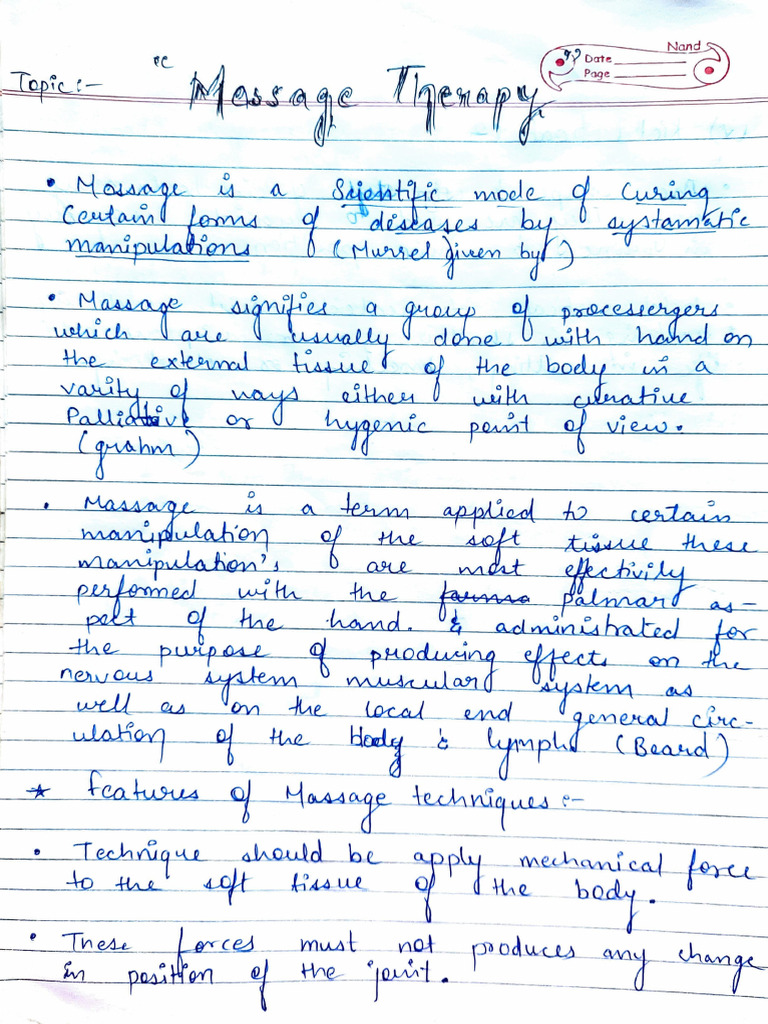 Nand
Date
Page
Topic:- "Massage Therapy
• Massage is a Scientific mode of Curing
Certain forms of diseases by systamatic
manipulations (Murrel given by)
• Massage signifies a group of processergers
which are usually done with hand on
the external tissue of the body in a
varity of ways either with curative
Palliative or hygenic point of view.
(grahm)
• Massage is a term applied to certain
manipulation of the soft tissue these
manipulation's are most effectivity
performed with the palmar as-
pect of the hand. & administrated for
the purpose of producing effects on the
nervous system muscular system as
well as on the local end general circ-
ulation of the body & lymph (Beard)
* features of Massage techniques:-
• Technique should be apply mechanical force
to the soft tissue of the body.
• These forces must not produces any change
in position of the joint.